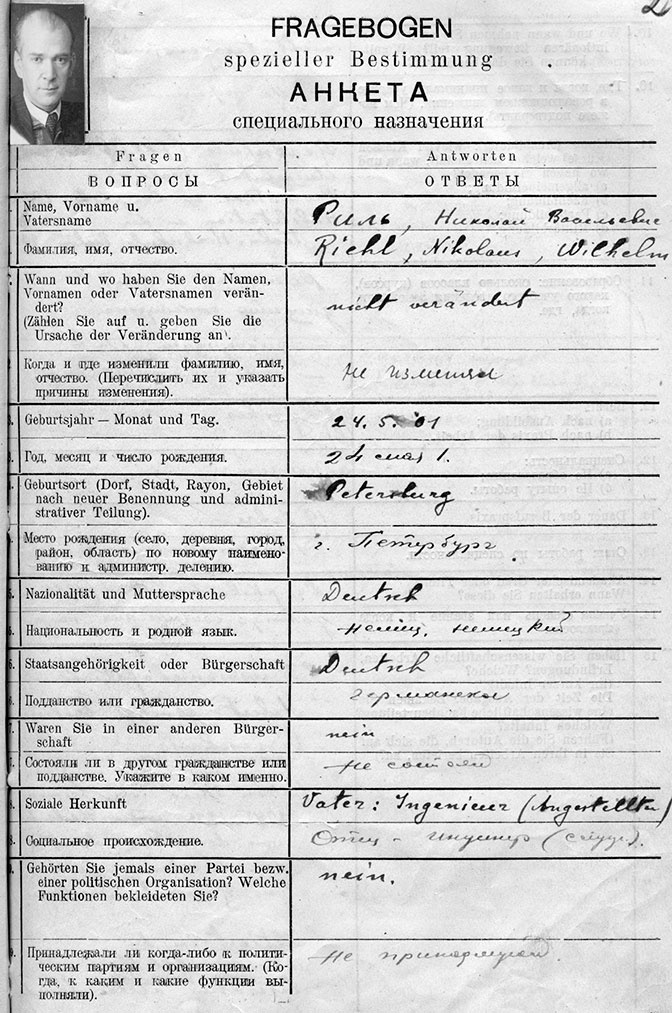 FRAGEBOGEN
spezieller Bestimmung
АНКЕТА
специального назначения
Fragen
Antworten
ВОПРОСЫ
ОТВЕТЫ
Name, Vorname u.
Vatersname
Риль, Николай Васильевич
Фамилия, имя, отчество.
Riehl, Nikolaus, Wilhelm
Wann und wo haben Sie den Namen,
Vornamen oder Vatersnamen verän-
dert?
(Zählen Sie auf u. geben Sie die
Ursache der Veränderung an).
nicht verändert
Когда и где изменили фамилию, имя,
отчество. (Перечислить их и указать
причины изменения).
не изменял
Geburtsjahr — Monat und Tag.
24. 5. 01
Год, месяц и число рождения.
24 мая 1.
Geburtsort (Dorf, Stadt, Rayon, Gebiet
nach neuer Benennung und admini-
strativer Teilung).
Petersburg
Место рождения (село, деревня, город,
район, область) по новому наимено-
ванию и администр. делению.
г. Петербург
Nazionalität und Muttersprache
Deutsch
Национальность и родной язык.
немец, немецкий
Staatsangehörigkeit oder Bürgerschaft
Deutsch
Подданство или гражданство.
германское
Waren Sie in einer anderen Bürger-
schaft
nein
Состояли ли в другом гражданстве или
подданстве. Укажите в каком именно.
не состоял
Soziale Herkunft
Vater: Ingenieur (Angestellter)
Социальное происхождение.
Отец - инженер (служ.).
Gehörten Sie jemals einer Partei bezw.
einer politischen Organisation? Welche
Funktionen bekleideten Sie?
nein.
Принадлежали ли когда-либо к полити-
ческим партиям и организациям. (Ко-
гда, к каким и какие функции вы-
полняли).
не принадлежал.